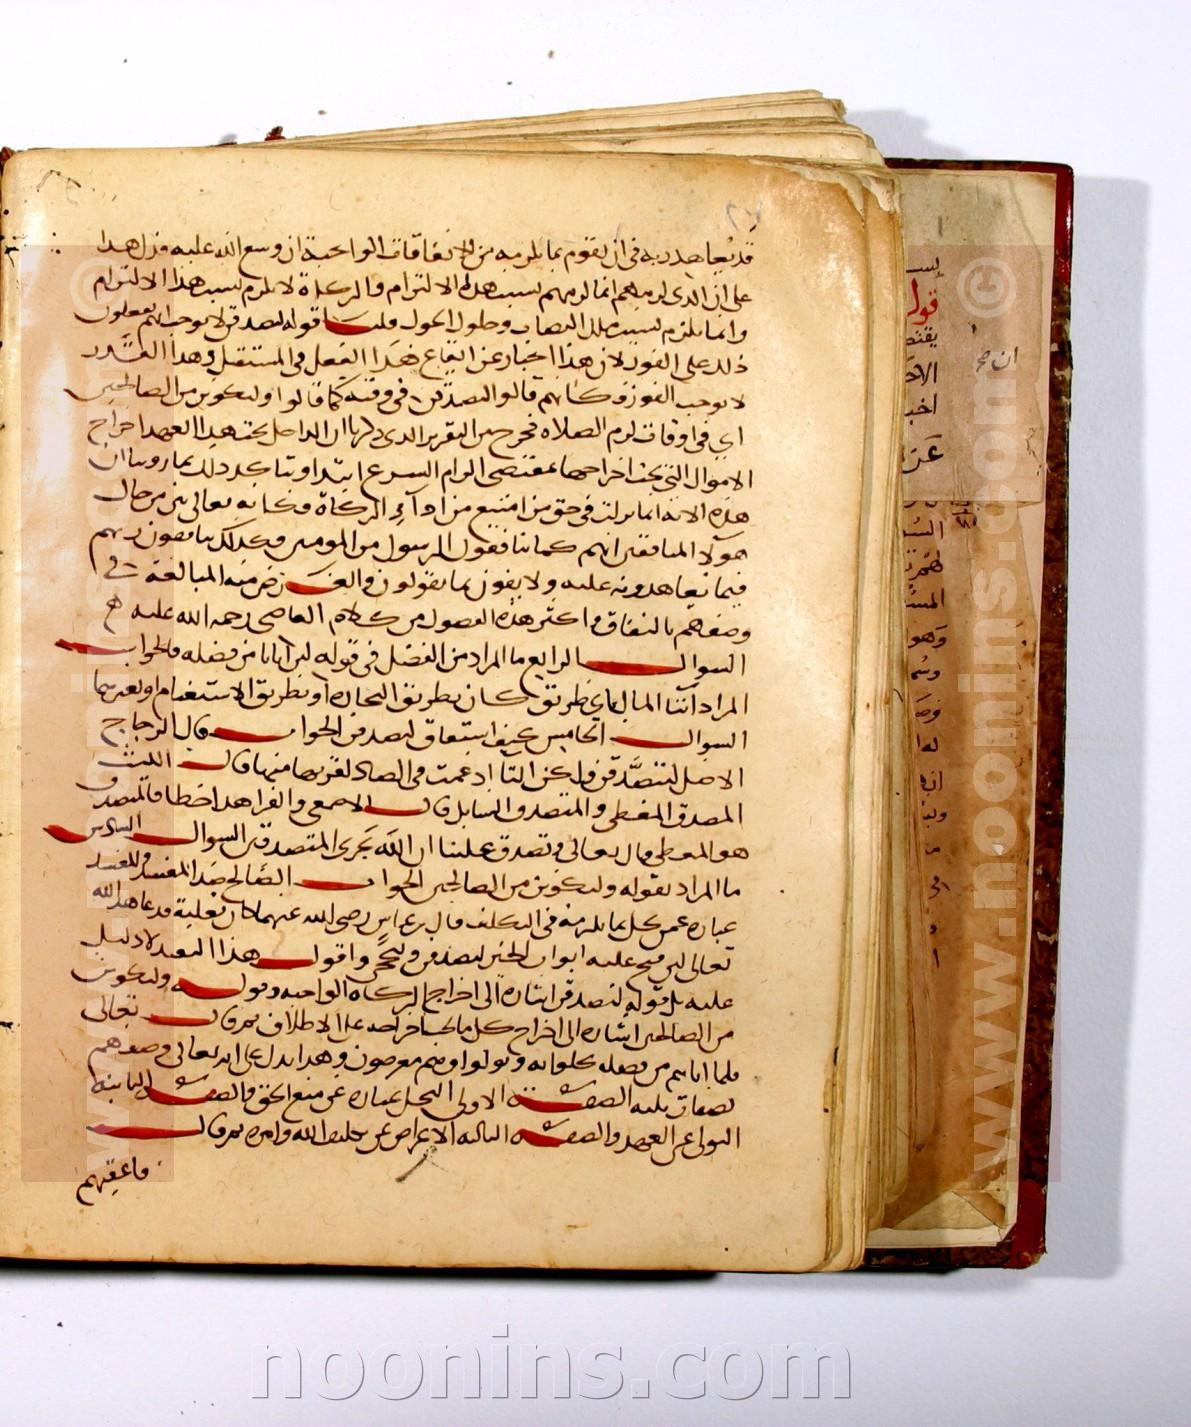 قد يعاهد ربه في ان يقوم بما يلزمه من الانفاقات الواجبة ان وسع الله عليه فدل هذا
على ان الذي لزمهم انما لزمهم بسبب هذا الالتزام والزكاة لا يلزم بسبب هذا الالتزام
وانما يلزم بسبب ملك النصاب وحلول الحول قلت قوله لنصدقن لا يوجب انهم يفعلون
ذلك على الفور لان هذا اخبار عن ايقاع هذا الفعل في المستقبل وهذا القدر
لا يوجب الفور فكانهم قالوا لنصدقن في وقته كما قالوا ولنكونن من الصالحين
اي في اوقات لزوم الصلاه فخرج من التقرير الذي ذكرنا ان الداخل تحت هذا العهد اخراج
الاموال التي يجب اخراجها بمقتضى الزام الشرع ابتدا ويتاكد ذلك بما روينا ان
هذه الاية انما نزلت في حق من امتنع من اداء الزكاة فكانه تعالى بين من حال
هولاء المنافقين انهم كما ينافقون الرسول والمومنين فكذلك ينافقون ربهم
فيما يعاهدونه عليه ولا يفون بما يقولون والغرض منه المبالغة في
وصفهم بالنفاق واكثر هذه الفصول من كلام القاضي رحمه الله عليه
السوال الرابع ما المراد من الفضل في قوله لئن اتانا من فضله والجواب
المراد آتينا المال باي طريق كان بطريق التجارة او بطريق الاستغنام او بغيرهما
السوال الخامس كيف اشتقاق لنصدقن الجواب قال الزجاج
الاصل لنتصدقن ولكن التا ادغمت في الصاد لقربها منها قال الليث
المصدق المعطي والمتصدق السايل قال الاصمعي والفرا هذا خطا فالمتصدق
هو المعطي قال تعالى وتصدق علينا ان الله يجزي المتصدقين السوال السادس
ما المراد بقوله ولنكونن من الصالحين الجواب الصالح ضد المفسد والمفسد
عباره عمن بخل بما يلزمه في التكليف قال بن عباس رضي الله عنهما كان ثعلبة قد عاهد الله
تعالى لئن فتح عليه ابواب الخير ليصدقن وليحجن واقول هذا التقييد لا دليل
عليه بل قوله لنصدقن اشارة الى اخراج الزكاة الواجبه وقوله ولنكونن
من الصالحين اشاره الى اخراج كل ما يجب اخراجه على الاطلاق ثم قال تعالى
فلما اتاهم من فضله بخلوا به وتولوا وهم معرضون وهذا يدل على انه تعالى وصفهم
بصفات ثلثه الصفة الاولى البخل عباره عن منع الحق والصفة الثانية
التولي عن العهد والصفة الثالثة الاعراض عن تكليف الله وامره ثم قال
فاعقبهم
قول
ان صح
www.noonins.com ©
noonins.com